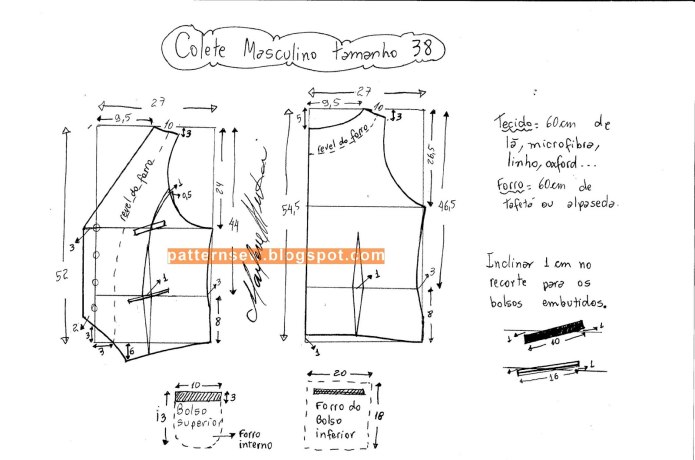 Colete Masculino tamanho 38
27
9,5
10
3
revel do forro
1
0,5
24
44
52
3
1
3
2
3
3
6
8
27
9,5
10
5
3
revel do forro
26,5
54,5
46,5
1
3
8
1
patternsew.blogspot.com
Tecido = 60cm de
lã, microfibra,
linho, oxford...
Forro = 60cm de
tafetá ou alpaseda.
Inclinar 1 cm no
recorte para os
bolsos embutidos.
1
10
1
1
16
1
10
3
13
Bolso
superior
Forro
interno
20
18
Forro do
Bolso
inferior